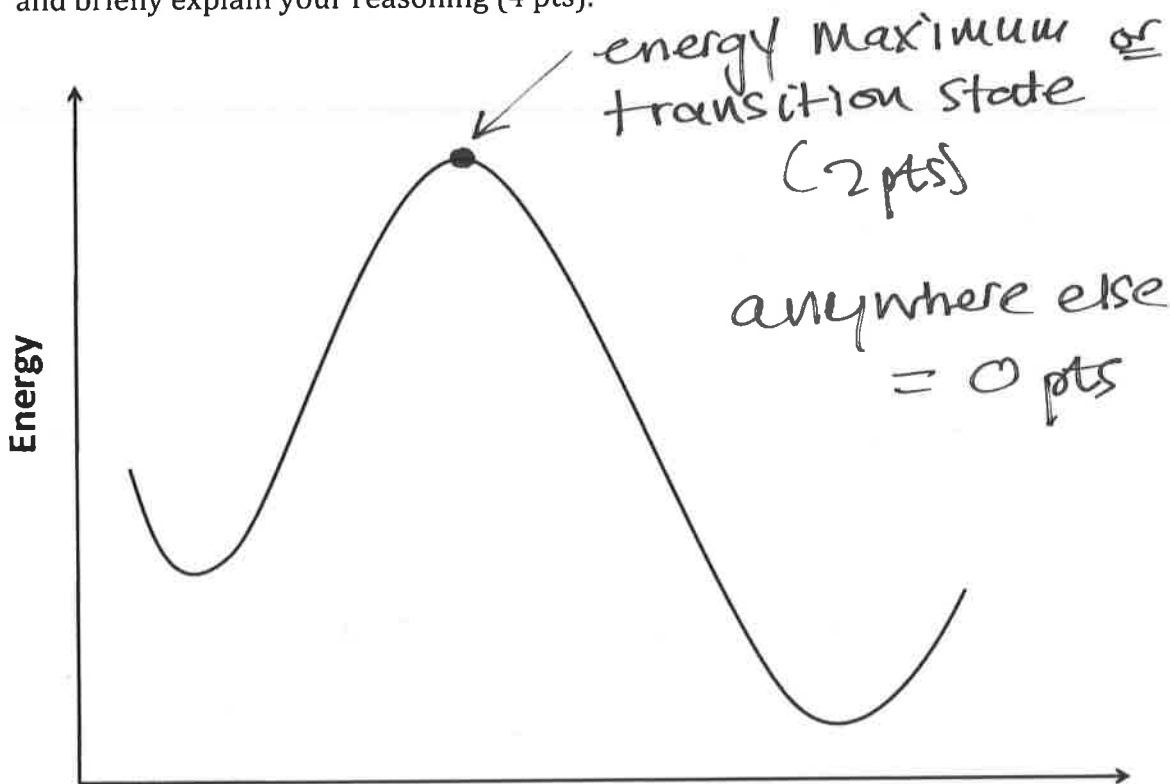 and briefly explain your reasoning (4 pts).
energy maximum or
transition state
(2 pts)
anywhere else
= 0 pts
Energy